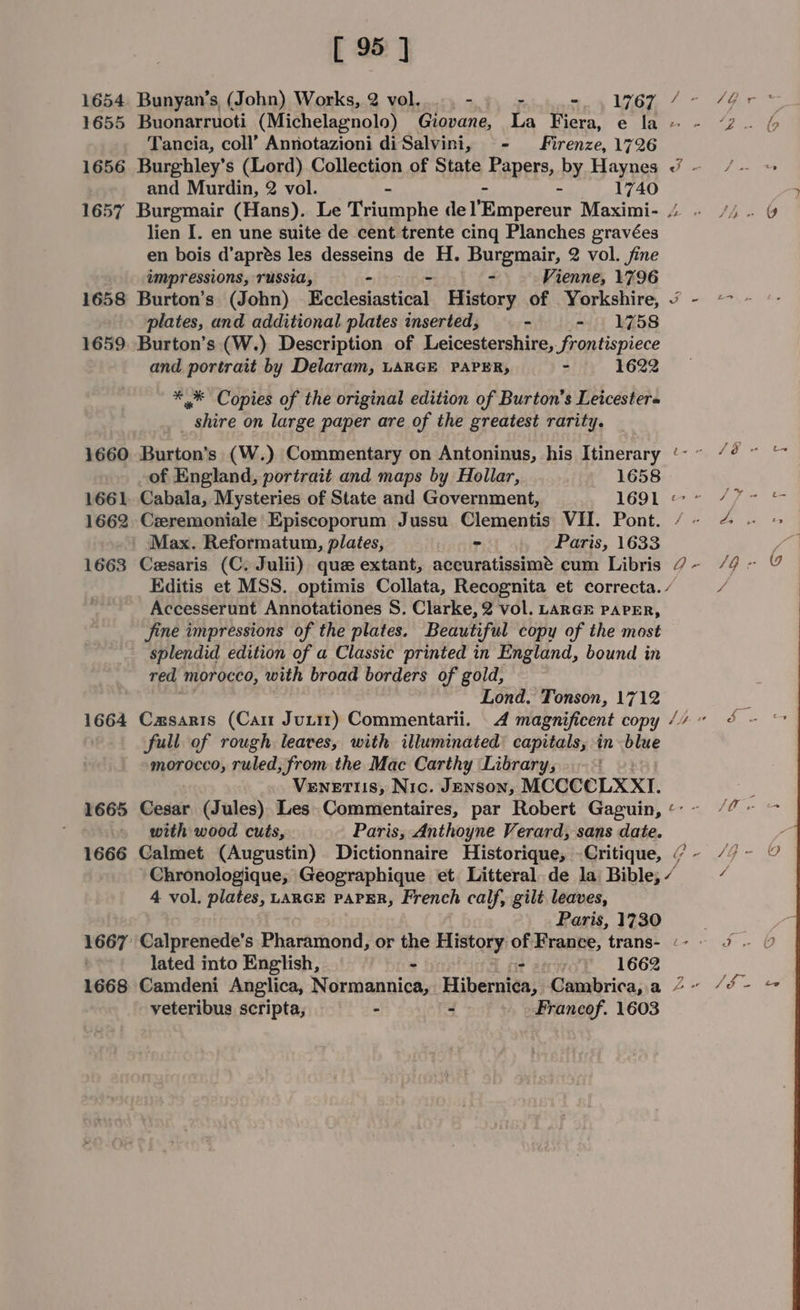 [ 95 ]
1654 Bunyan's (John) Works, 2 vol. - - - 1767
1655 Buonarruoti (Michelagnolo) Giovane, La Fiera, e la
Tancia, coll' Annotazioni di Salvini, - Firenze, 1726
1656 Burghley's (Lord) Collection of State Papers, by Haynes
and Murdin, 2 vol. - - - 1740
1657 Burgmair (Hans). Le Triumphe de l'Empereur Maximi-
lien I. en une suite de cent trente cinq Planches gravées
en bois d'après les desseins de H. Burgmair, 2 vol. fine
impressions, russia, - - - Vienne, 1796
1658 Burton's (John) Ecclesiastical History of Yorkshire,
plates, and additional plates inserted, - - 1758
1659 Burton's (W.) Description of Leicestershire, frontispiece
and portrait by Delaram, LARGE PAPER, - 1622
*** Copies of the original edition of Burton's Leicester-
shire on large paper are of the greatest rarity.
1660 Burton's (W.) Commentary on Antoninus, his Itinerary
of England, portrait and maps by Hollar, 1658
1661 Cabala, Mysteries of State and Government, 1691
1662 Cæremoniale Episcoporum Jussu Clementis VII. Pont.
Max. Reformatum, plates, - Paris, 1633
1663 Cæsaris (C. Julii) quæ extant, accuratissimè cum Libris
Editis et MSS. optimis Collata, Recognita et correcta.
Accesserunt Annotationes S. Clarke, 2 vol. LARGE PAPER,
fine impressions of the plates. Beautiful copy of the most
splendid edition of a Classic printed in England, bound in
red morocco, with broad borders of gold,
Lond. Tonson, 1712
1664 CÆSARIS (CAII JULII) Commentarii. A magnificent copy
full of rough leaves, with illuminated capitals, in blue
morocco, ruled, from the Mac Carthy Library,
VENETIIS, NIC. JENSON, MCCCCLXXI.
1665 Cesar (Jules) Les Commentaires, par Robert Gaguin,
with wood cuts, Paris, Anthoyne Verard, sans date.
1666 Calmet (Augustin) Dictionnaire Historique, Critique,
Chronologique, Geographique et Litteral de la Bible,
4 vol. plates, LARGE PAPER, French calf, gilt leaves,
Paris, 1730
1667 Calprenede's Pharamond, or the History of France, trans-
lated into English, - - 1662
1668 Camdeni Anglica, Normannica, Hibernica, Cambrica, a
veteribus scripta, - - Francof. 1603